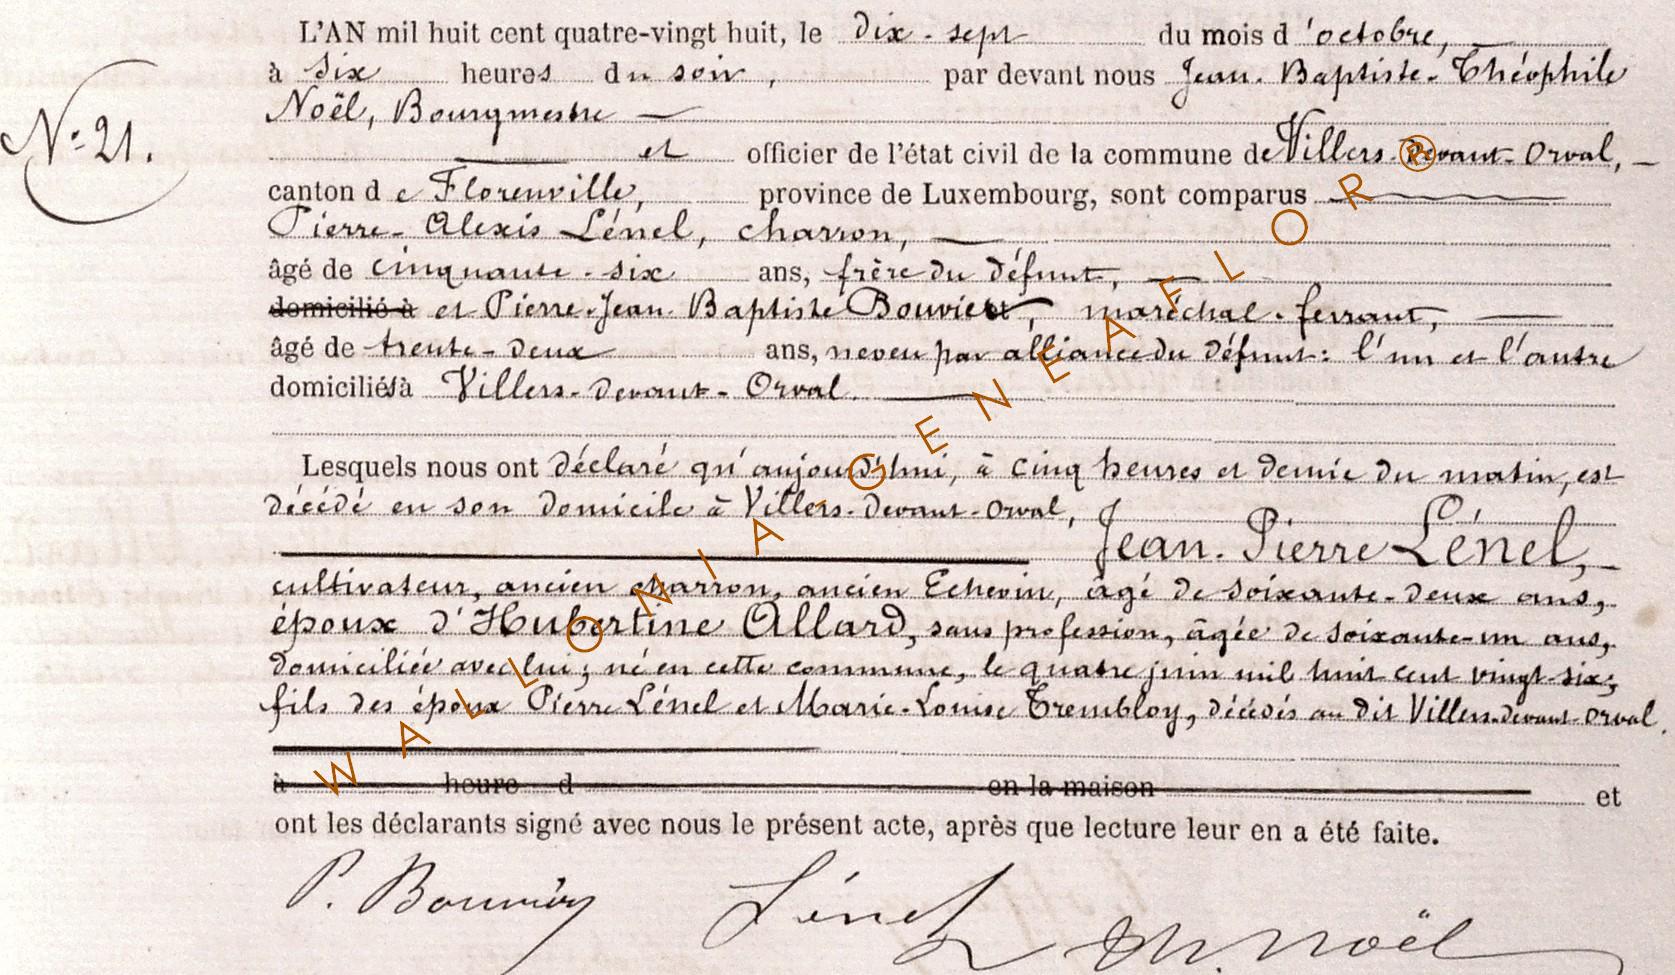 L'AN mil huit cent quatre-vingt huit, le dix-sept du mois d'octobre,
à six heures du soir, par devant nous Jean-Baptiste-Théophile
Noël, Bourgmestre
N° 21.
et officier de l'état civil de la commune de Villers-Devant-Orval,
canton de Florenville, province de Luxembourg, sont comparus
Pierre-Alexis Lénel, charron,
âgé de cinquante-six ans, frère du défunt,
domicilié à et Pierre-Jean-Baptiste Bouvier, maréchal-ferrant,
âgé de trente-deux ans, neveu par alliance du défunt: l'un et l'autre
domiciliés à Villers-devant-Orval.
Lesquels nous ont déclaré qu'aujourd'hui, à cinq heures et demie du matin, est
décédé en son domicile à Villers-devant-Orval, Jean-Pierre Lénel,
cultivateur, ancien charron, ancien Echevin, âgé de soixante-deux ans,
époux d'Hubertine Allard, sans profession, âgée de soixante-un ans,
domiciliée avec lui; né en cette commune, le quatre juin mil huit cent vingt-six;
fils des époux Pierre Lénel et Marie-Louise Trembloy, décédés au dit Villers-devant-Orval.
à heure d en la maison et
ont les déclarants signé avec nous le présent acte, après que lecture leur en a été faite.
P. Bouvier Lénel Th. Noël
WALLONIA-GENEAFLOR®